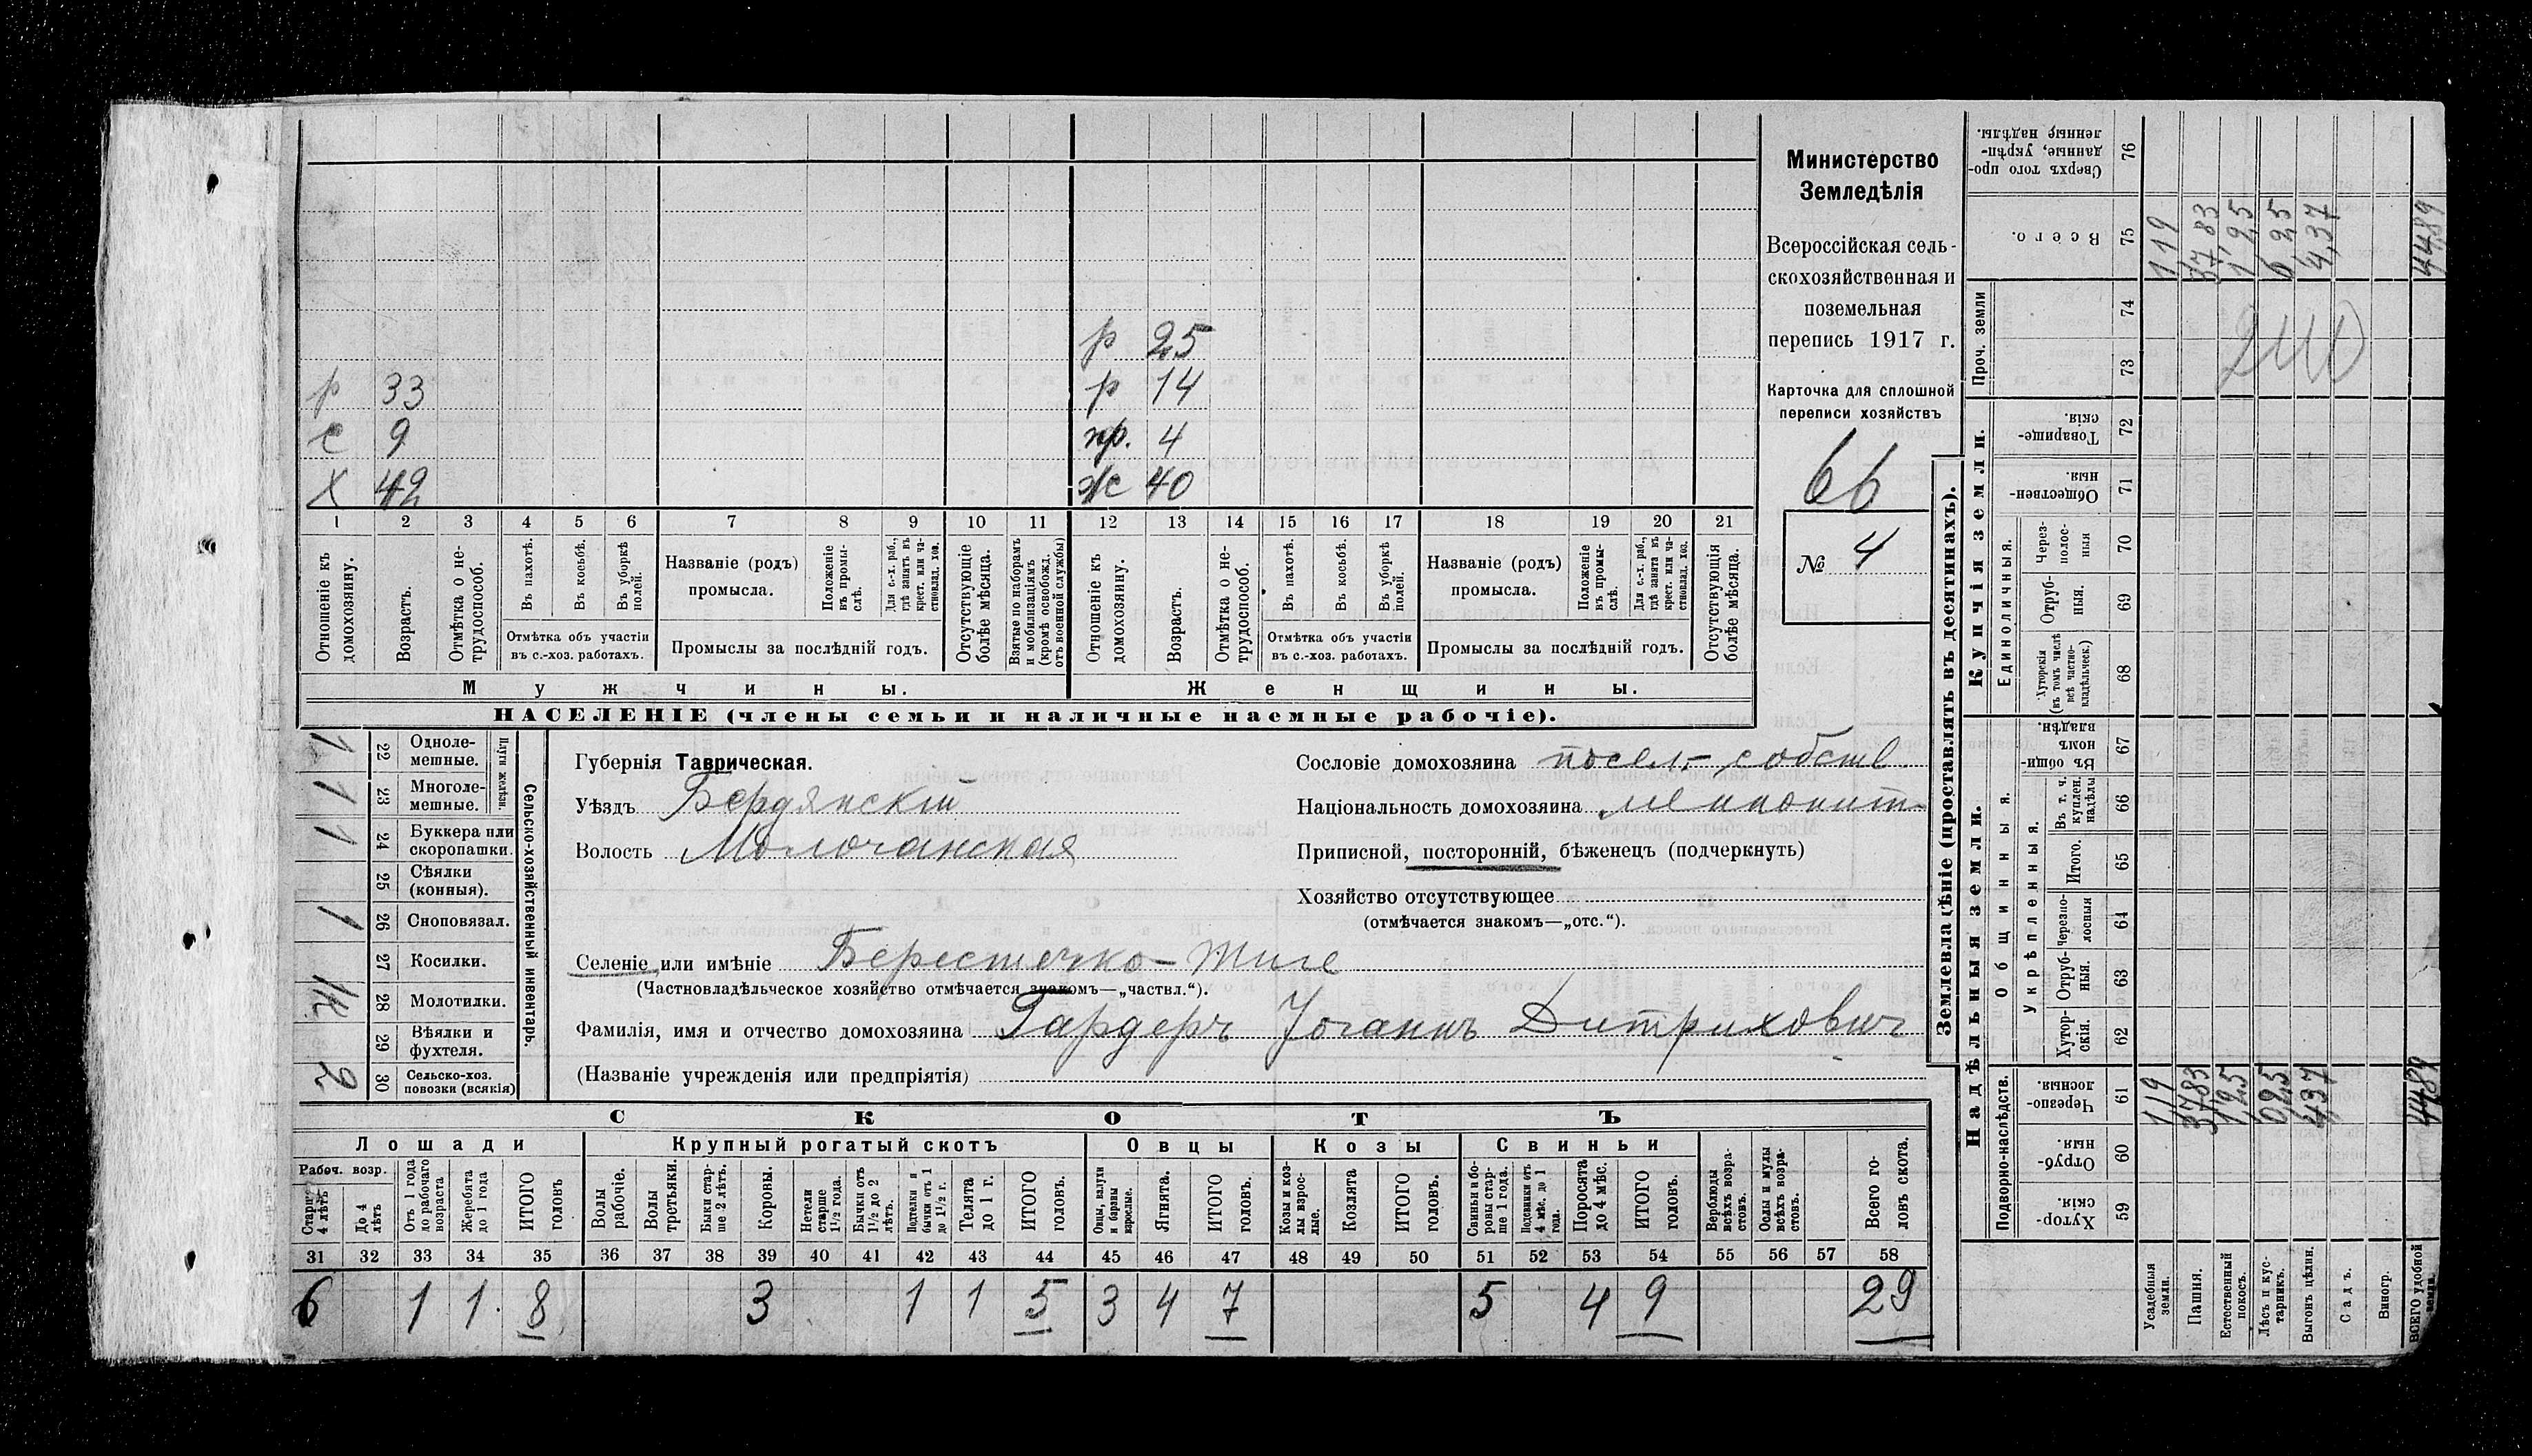 Министерство
Земледѣлія
Всероссійская сель-
скохозяйственная и
поземельная
перепись 1917 г.
Карточка для сплошной
переписи хозяйствъ
66
№ 4
р 25
р 33 р 14
с 9 пр. 4
х 42 ж 40
1 2 3 4 5 6 7 8 9 10 11 12 13 14 15 16 17 18 19 20 21
Отношеніе къ домохозяину.
Возрастъ.
Отмѣтка о не-трудоспособ.
Въ пахотѣ.
Въ косьбѣ.
Въ уборкѣ полей.
Отмѣтка объ участіи
въ с.-хоз. работахъ.
Названіе (родъ)
промысла.
Положеніе въ промы-слѣ.
Для с.-х. раб., гдѣ занятъ въ крест. или ча-стновлад. хоз.
Промыслы за послѣдній годъ.
Отсутствующіе болѣе мѣсяца.
Взятые по наборамъ и мобилизаціямъ (кромѣ освобожд. отъ военной службы)
Отношеніе къ домохозяину.
Возрастъ.
Отмѣтка о не-трудоспособ.
Въ пахотѣ.
Въ косьбѣ.
Въ уборкѣ полей.
Отмѣтка объ участіи
въ с.-хоз. работахъ.
Названіе (родъ)
промысла.
Положеніе въ промы-слѣ.
Для с.-х. раб., гдѣ занята въ крест. или ча-стновлад. хоз.
Промыслы за послѣдній годъ.
Отсутствующія болѣе мѣсяца.
Мужчины. Женщины.
НАСЕЛЕНІЕ (члены семьи и наличные наемные рабочіе).
Сельско-хозяйственный инвентарь.
Плуги желѣзн.
1 22 Одноле-мешные.
1 23 Многоле-мешные.
1 24 Буккера или скоропашки.
25 Сѣялки (конныя).
1 26 Сноповязал.
27 Косилки.
28 Молотилки.
29 Вѣялки и фухтеля.
2 30 Сельско-хоз. повозки (всякія)
Губернія Таврическая.
Уѣздъ Бердянскій
Волость Молочанская
Сословіе домохозяина посел.- собств
Национальность домохозяина менонит-
Приписной, посторонній, бѣженецъ (подчеркнуть)
Хозяйство отсутствующее
(отмѣчается знакомъ—„отс.“).
Селеніе или имѣніе Берестечко- Тиге
(Частновладѣльческое хозяйство отмѣчается знакомъ—„частвл.“).
Фамилія, имя и отчество домохозяина Гардеръ Іоганнъ Дитрихович
(Названіе учрежденія или предпріятія)
СКОТЪ
Лошади Крупный рогатый скотъ Овцы Козы Свиньи
Рабоч. возр.
Старше 4 лѣтъ
До 4 лѣтъ
Отъ 1 года до рабочаго возраста
Жеребята до 1 года
ИТОГО головъ
Волы рабочіе.
Волы третьяки.
Быки стар-ше 2 лѣтъ.
Коровы.
Нетели старше 1½ года.
Бычки отъ 1½ до 2 лѣтъ.
Подтелки и бычки отъ 1 до 1½ г.
Телята до 1 г.
ИТОГО головъ.
Овцы, валухи и бараны взрослые.
Ягнята.
ИТОГО головъ.
Козы и коз-лы взрос-лые.
Козлята
ИТОГО головъ.
Свиньи и бо-ровы стар-ше 1 года.
Подсвинки отъ 4 мѣс. до 1 года.
Поросята до 4 мѣс.
ИТОГО головъ.
Верблюды всѣхъ возра-стовъ.
Ослы и мулы всѣхъ возра-стовъ.
Всего го-ловъ скота.
31 32 33 34 35 36 37 38 39 40 41 42 43 44 45 46 47 48 49 50 51 52 53 54 55 56 57 58
6 1 1 8 3 1 1 5 3 4 7 5 4 9 29
Землевладѣніе (проставлять въ десятинахъ).
Надѣльныя земли. Купчія земли. Проч. земли
Подворно-наслѣдств. Общинныя. Единоличныя.
Укрѣпленныя.
Хутор-скія. 59
Отруб-ныя. 60
Черезпо-лосныя. 61
Хутор-скія. 62
Отруб-ныя. 63
Черезпо-лосныя 64
Итого. 65
Въ т. ч. куплен. надѣлы 66
Въ общин-номъ владѣн. 67
Хуторскія (въ томъ числѣ всѣ частно-владѣльческ.) 68
Отруб-ныя. 69
Через-полос-ныя 70
Обществен-ныя. 71
Товарище-скія. 72
73
74
Всего. 75
Сверхъ того про-данные, укрѣп-ленные надѣлы. 76
Усадебныя земли. 1,19 1 19
Пашня. 37,83 37 83
Естественный покосъ. 1,25 1,25
Лѣсъ и кус-тарникъ. 0,25 0 25
Выгонъ цѣлин. 4,37 4,37
Садъ.
Виногр.
ВСЕГО удобной земли. 44,89 44,89